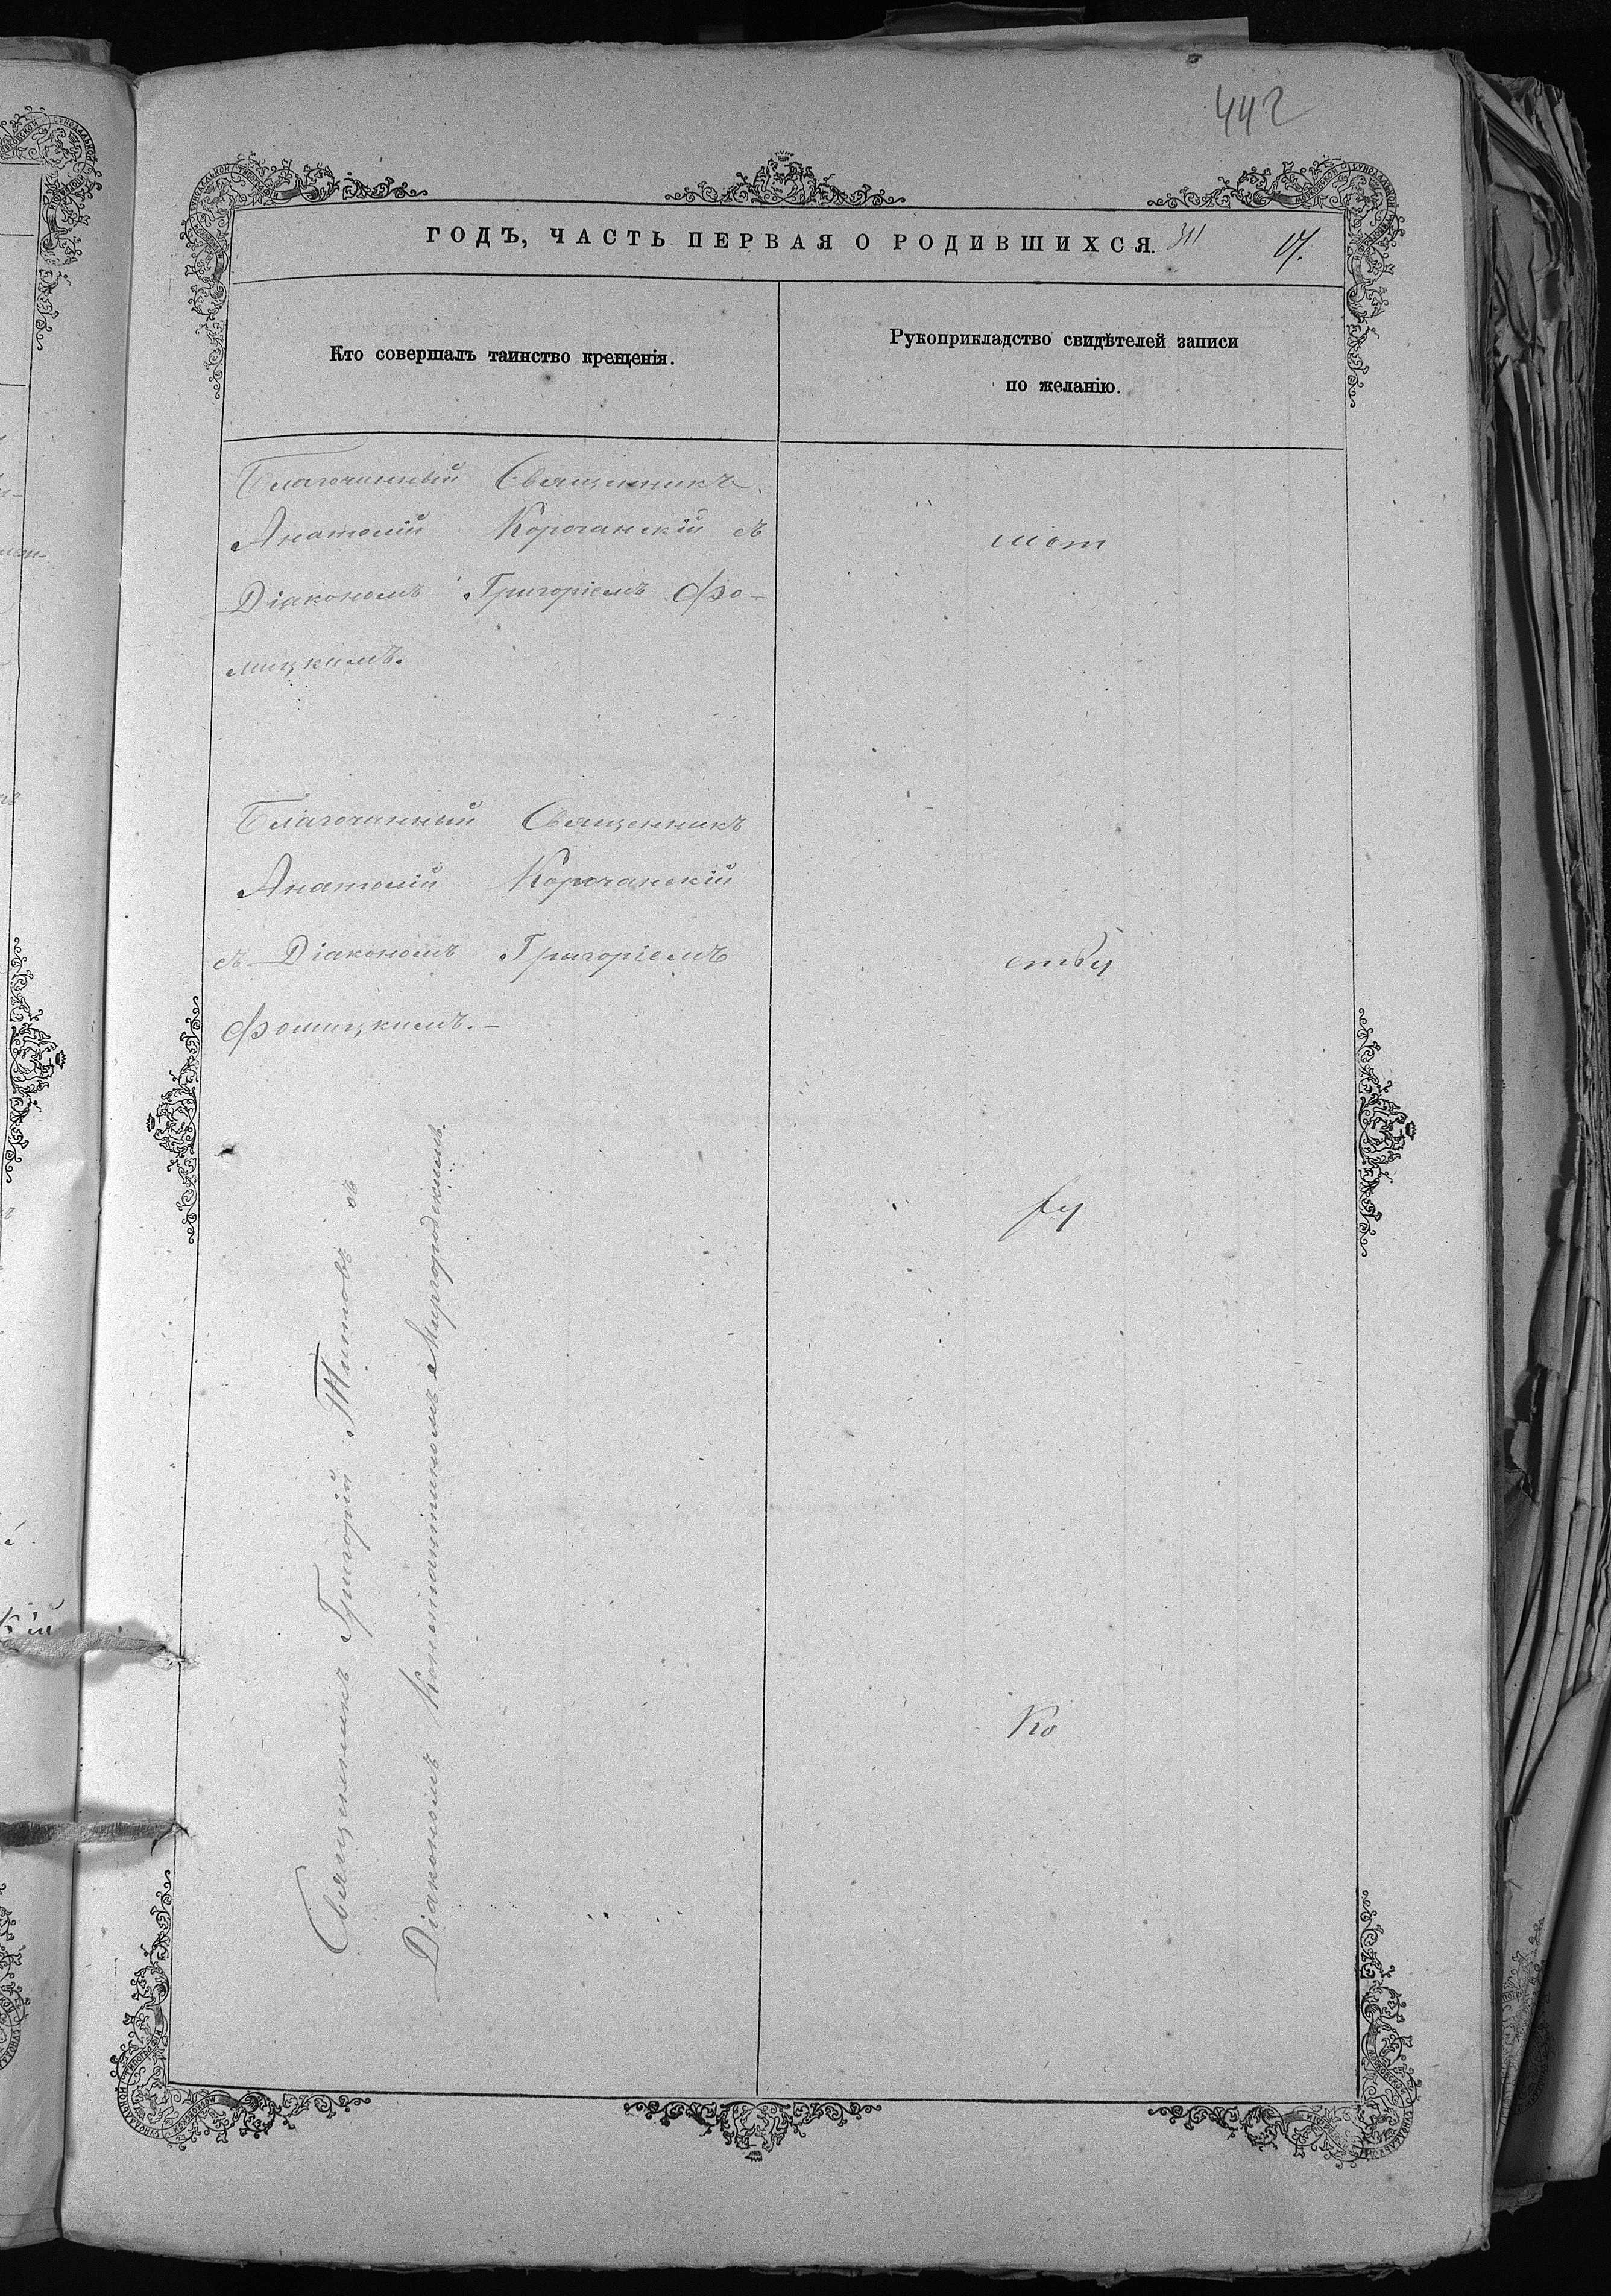 442
ГОДЪ, ЧАСТЬ ПЕРВАЯ О РОДИВШИХСЯ. 311
Кто совершалъ таинство крещенія.
Рукоприкладство свидѣтелей записи
по желанію.
Благочинный Священникъ
Анатолій Корочанскій съ
Діакономъ Григоріемъ Фо-
мицкимъ.
Благочинный Священникъ
Анатолій Корочанскій
съ Діакономъ Григоріемъ
Фомицкимъ. –
Священникъ Григорій Титовъ съ
Діакономъ Константиномъ Миргородскимъ.
Ко